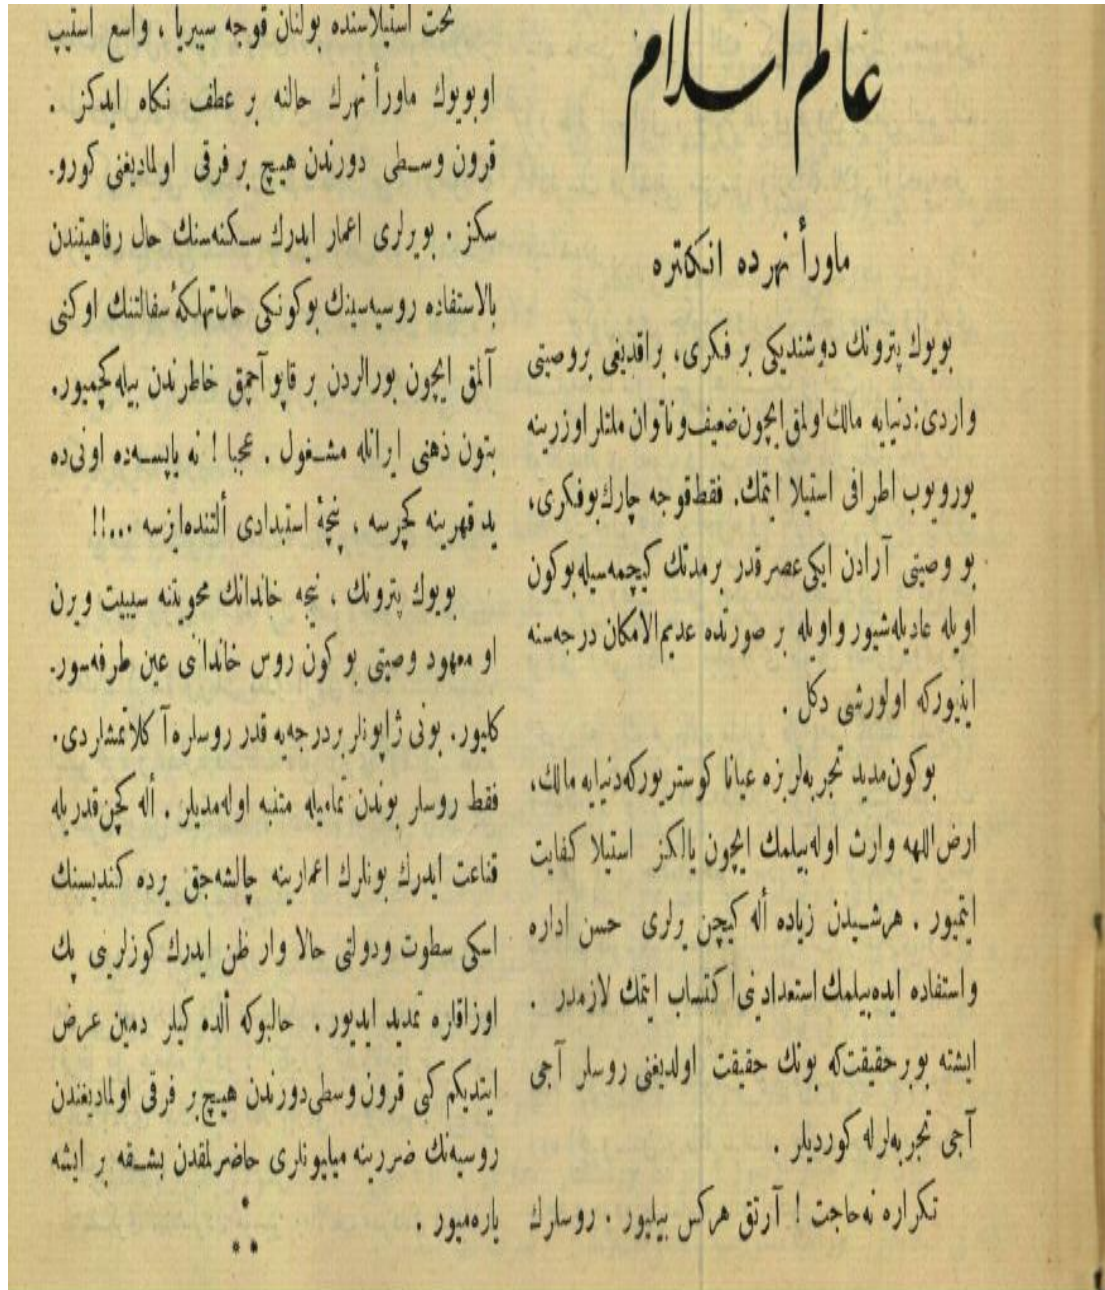 عالم اسلام
ماورأ نهرده انكلتره
بويوك پترونك دوشنديكى بر فكرى، براقديغى بروصيتى
واردى: دنيايه مالك اولمق ايچون ضعيف و ناتوان ملتلر اوزرينه
يورويوب اطرافى استيلا ايتمك. فقط قوجه چارك بوفكرى،
بو وصيتى آرادن ايكى عصر قدر برمدتك كيچمه‌سيله بوكون
اويله عاديله‌شيور واويله بر صورتده عديم‌الامكان درجه‌سنه
اينيوركه اولورشى دكل .
بوكون مديد تجربه‌لر بزه عيانا كوستريوركه دنيايه مالك،
ارض اللهه وارث اوله‌بيلمك ايچون يالكز استيلا كفايت
ايتميور . هرشيدن زياده أله كيچن يرلرى حسن اداره
واستفاده ايده‌بيلمك استعدادينى اكتساب ايتمك لازمدر .
ايشته بو بر حقيقت‌كه بونك حقيقت اولديغنى روسلر آجى
آجى تجربه‌لرله كورديلر .
تكراره نه‌حاجت ! آرتق هركس بيليور . روسلرك
تحت استيلاسنده بولنان قوجه سيبريا ، واسع استيپ
اوبويوك ماورأ نهرك حالنه بر عطف نكاه ايدكز .
قرون وسطى دورندن هيچ بر فرقى اولماديغنى كورو.
سكز . بويرلرى اعمار ايدرك سكنه‌سنك حال رفاهيتندن
بالاستفاده روسيه‌سينك بوكونكى حال تهلكۀ سفالتنك اوكنى
آلمق ايچون بورالردن بر قاپو آچمق خاطرندن بيله كچميور.
بتون ذهنى ايرانله مشغول . عجبا ! نه ياپسه‌ده اونى‌ده
يد قهرينه كچرسه ، پنچۀ استبدادى ألتنده ازسه ...!!
بويوك پترونك ، نيجه خاندانك محويتنه سببيت ويرن
او معهود وصيتى بو كون روس خاندانى عين طرفه‌سور.
كليور. بونى ژاپونلر بردرجه‌يه قدر روسلره آكلاتمشلردى.
فقط روسلر بوندن تماميله متنبه اوله‌مديلر . أله كچن‌قدريله
قناعت ايدرك بونلرك اعمارينه چاليشه‌جق يرده كنديسنك
اسكى سطوت ودولتى حالا وار ظن ايدرك كوزلرينى پك
اوزاقلره تمديد ايديور . حالبوكه ألده كيلر دمين عرض
ايتديكم كبى قرون وسطى دورندن هيچ بر فرقى اولماديغندن
روسيه‌نك ضررينه ميليونلرى حاضرلمقدن بشقه بر ايشه
يارەميور .
⁂